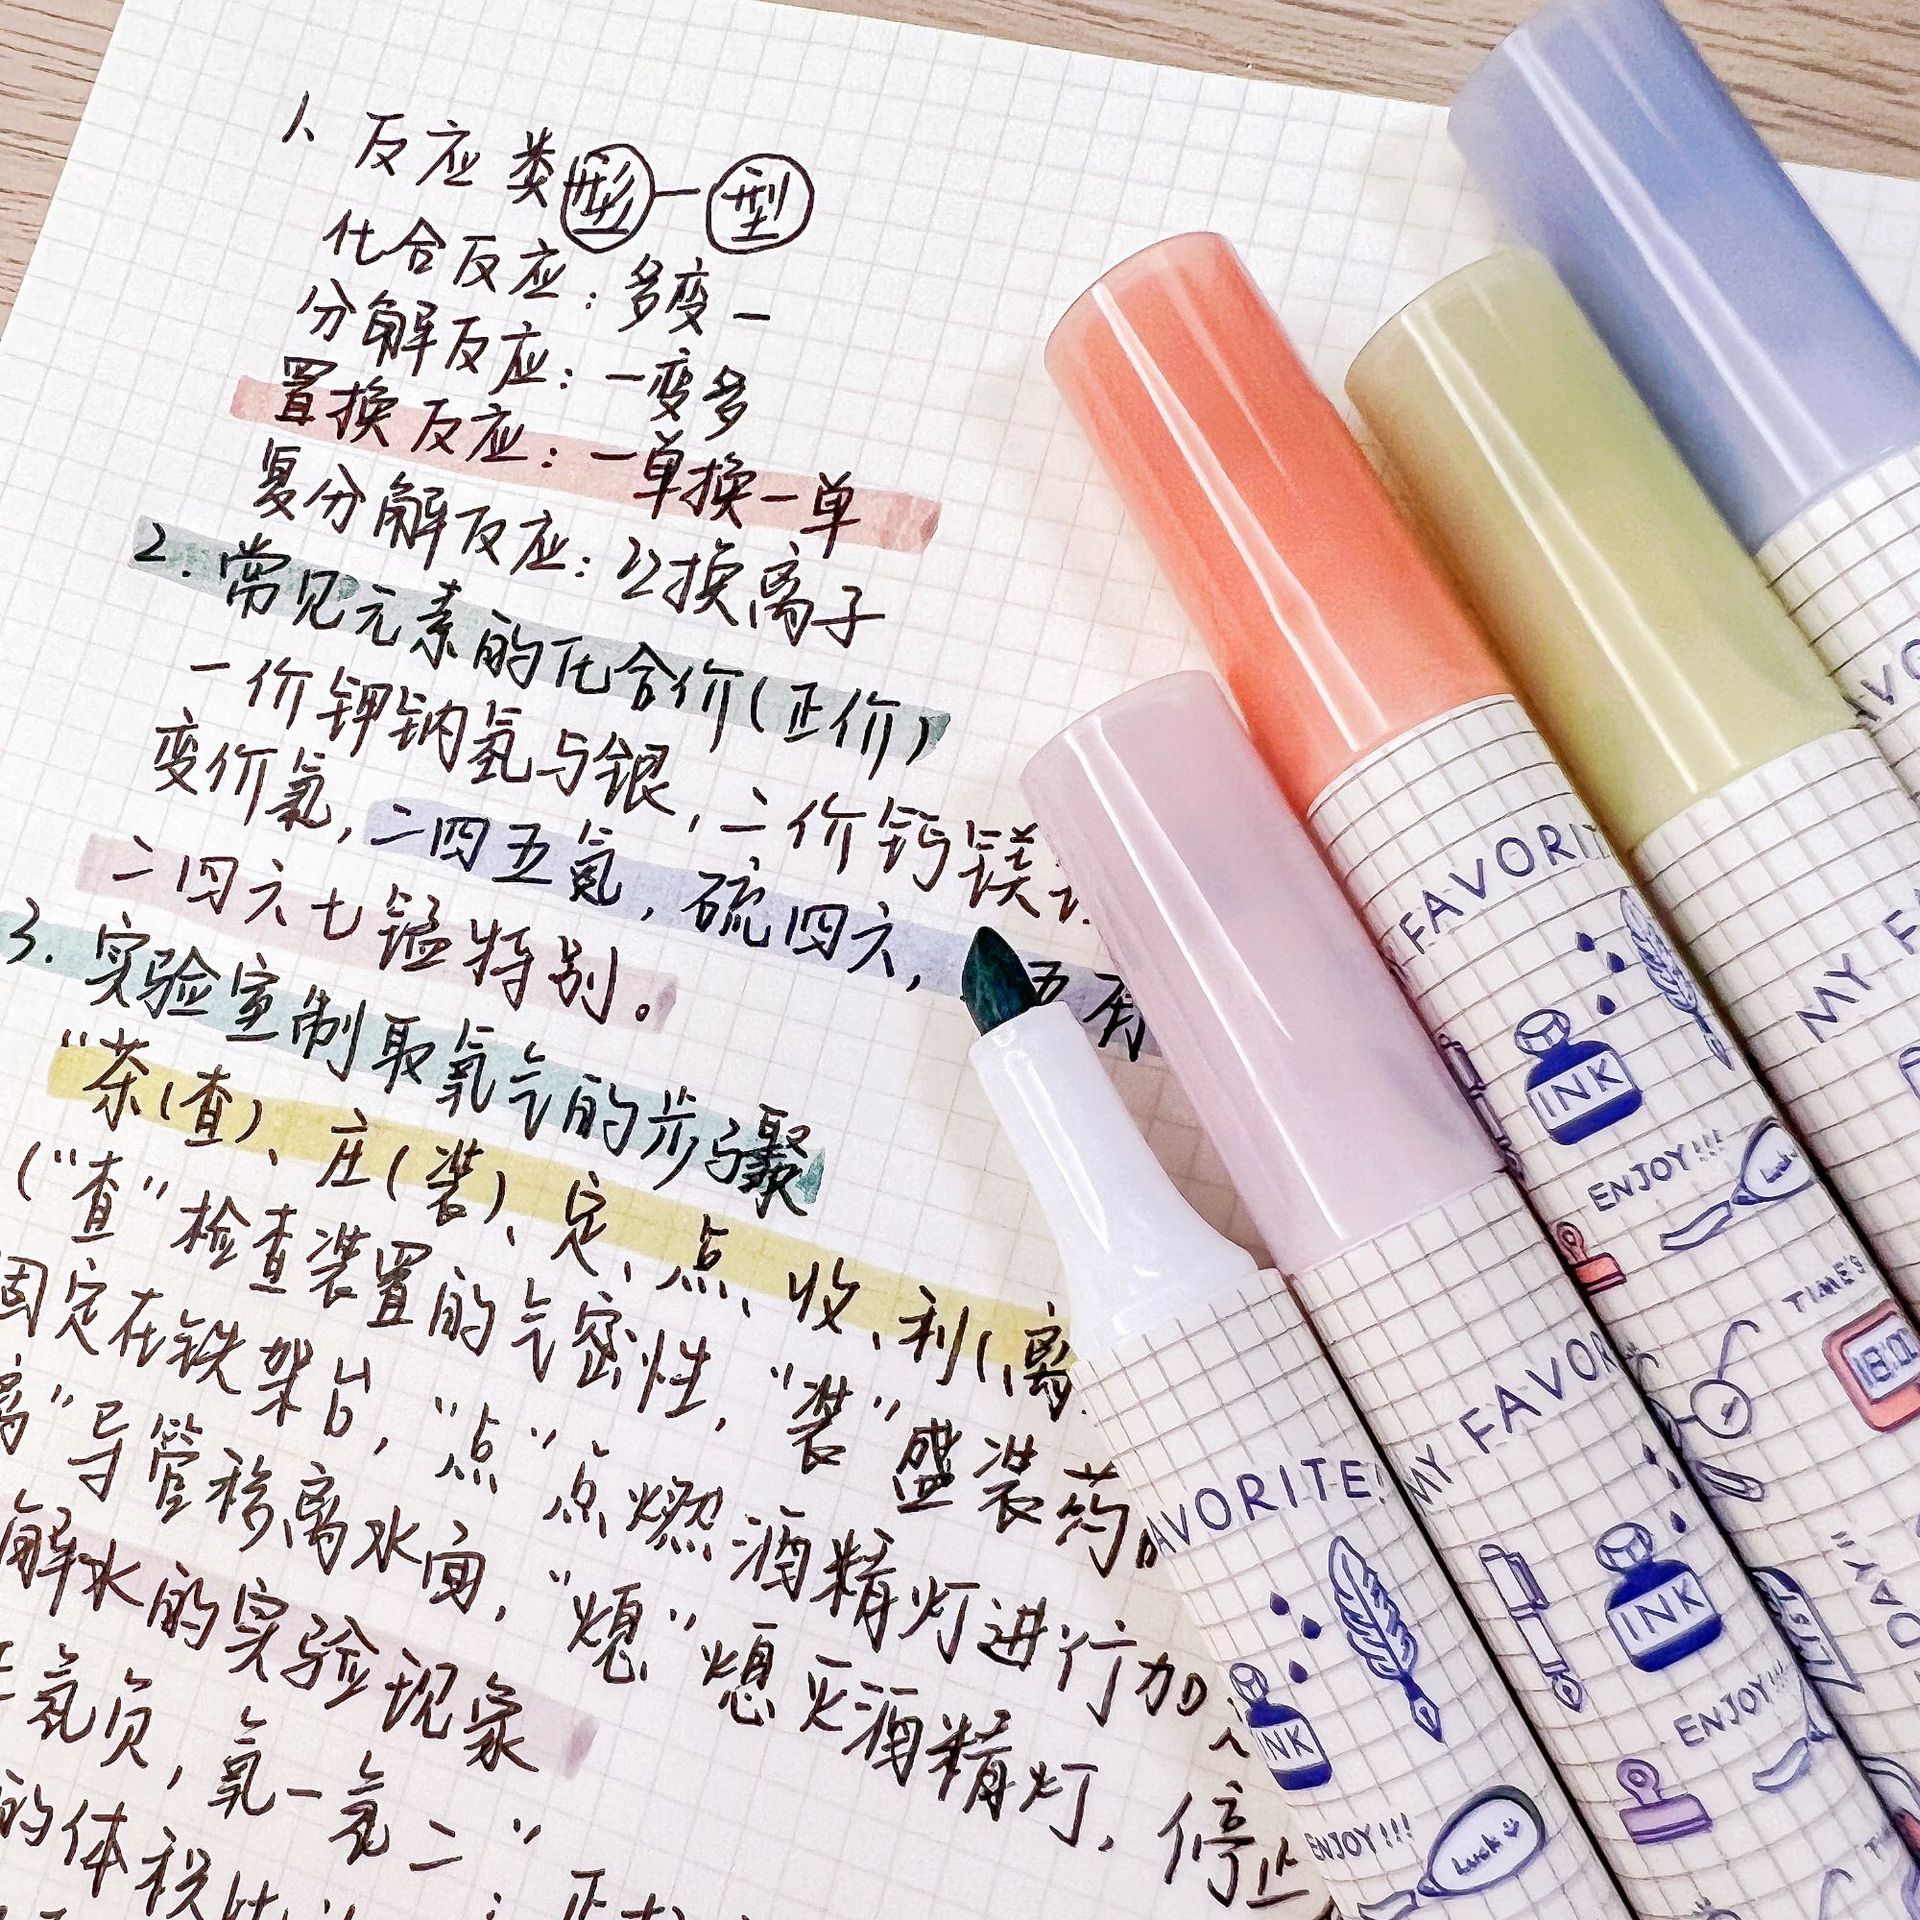 1、反应类形—型
化合反应：多变一
分解反应：一变多
置换反应：一单换一单
复分解反应：互换离子
2.常见元素的化合价(正价)
一价钾钠氢与银，二价钙镁
变价氮，二四五氮，硫四六，五有
二四六七锰特别。
3.实验室制取氧气的步骤
“茶(查)、庄(装)、定、点、收、利(离
(“查”检查装置的气密性，“装”盛装药
固定在铁架台，“点”点燃酒精灯进行加
离”导管移离水面，“熄”熄灭酒精灯，停止
解水的实验现象
氢负，氧一氢二”
的体积比
FAVORIT
INK
ENJOY!!!
Luck
TIME'S
18:00
MY F
AVORITE!
INK
ENJOY!!!
Luck
MY FAVOR
INK
ENJOY!!!
LIST
DAY"